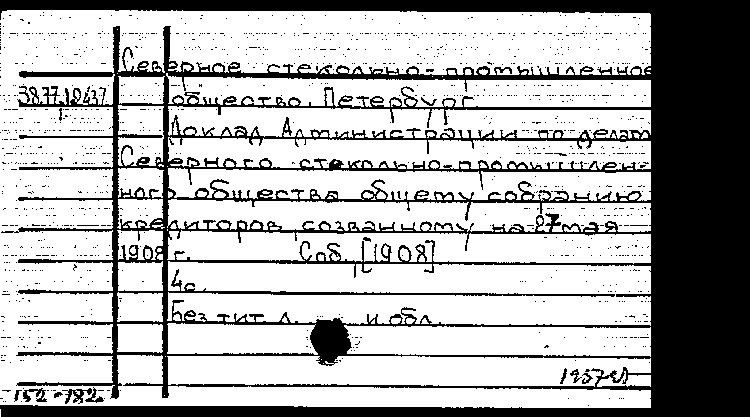 Северное стекольно-промышленное
38.77.19437 общество. Петербург.
Доклад Администрации по делам
Северного стекольно-промышлен-
ного общества общему собранию
кредиторов, созванному на 27 мая
1908 г. Спб., [1908]
4с.
Без тит. л. и обл.
152-182.